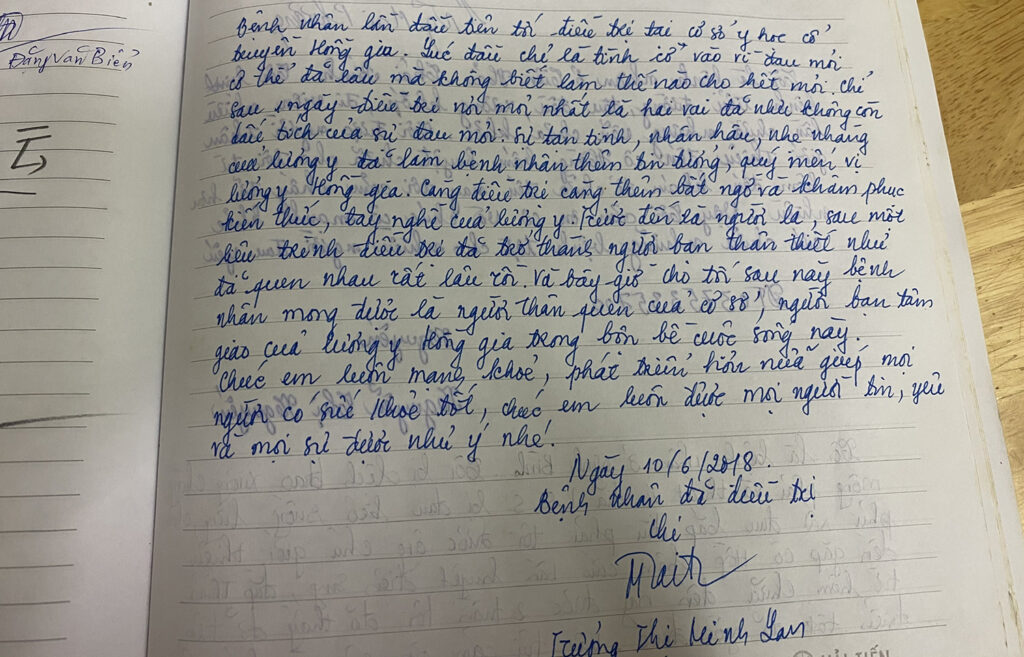 Đặng Văn Biển
Bệnh nhân lần đầu tiên tới điều trị tại cơ sở y học cổ
truyền Hồng Gia. Lúc đầu chỉ là tình cờ vào vì đau mỏi
cơ thể đã lâu mà không biết làm thế nào cho hết mỏi. Chỉ
sau 1 ngày điều trị nơi mỏi nhất là hai vai đã như không còn
dấu tích của sự đau mỏi. Sự tận tình, nhân hậu, nhẹ nhàng
của lương y đã làm bệnh nhân thêm tin tưởng, quý mến vị
lương y Hồng Gia. Càng điều trị càng thêm bất ngờ và khâm phục
kiến thức, tay nghề của lương y. Trước đến là người lạ, sau một
liệu trình điều trị đã trở thành người bạn thân thiết như
đã quen nhau rất lâu rồi. Và bây giờ cho tới sau này bệnh
nhân mong được là người thân quen của cơ sở, người bạn tâm
giao của lương y Hồng Gia trong bộn bề cuộc sống này.
Chúc em luôn mạnh khoẻ, phát triển hơn nữa giúp mọi
người có sức khoẻ tốt, chúc em luôn được mọi người tin, yêu
và mọi sự được như ý nhé.
Ngày 10/6/2018.
Bệnh nhân đã điều trị
Chị
Trương Thị Minh Lan
HẢI TIẾN